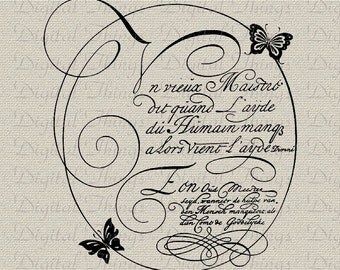 Un vieux Maistre
dit quand L'ayde
du Humain manq
alors vient l'ayde Divine
Een Oud Meester
seyd, wanneer de hulpe van
den Mensch manqueert als
dan come de Goddelycke